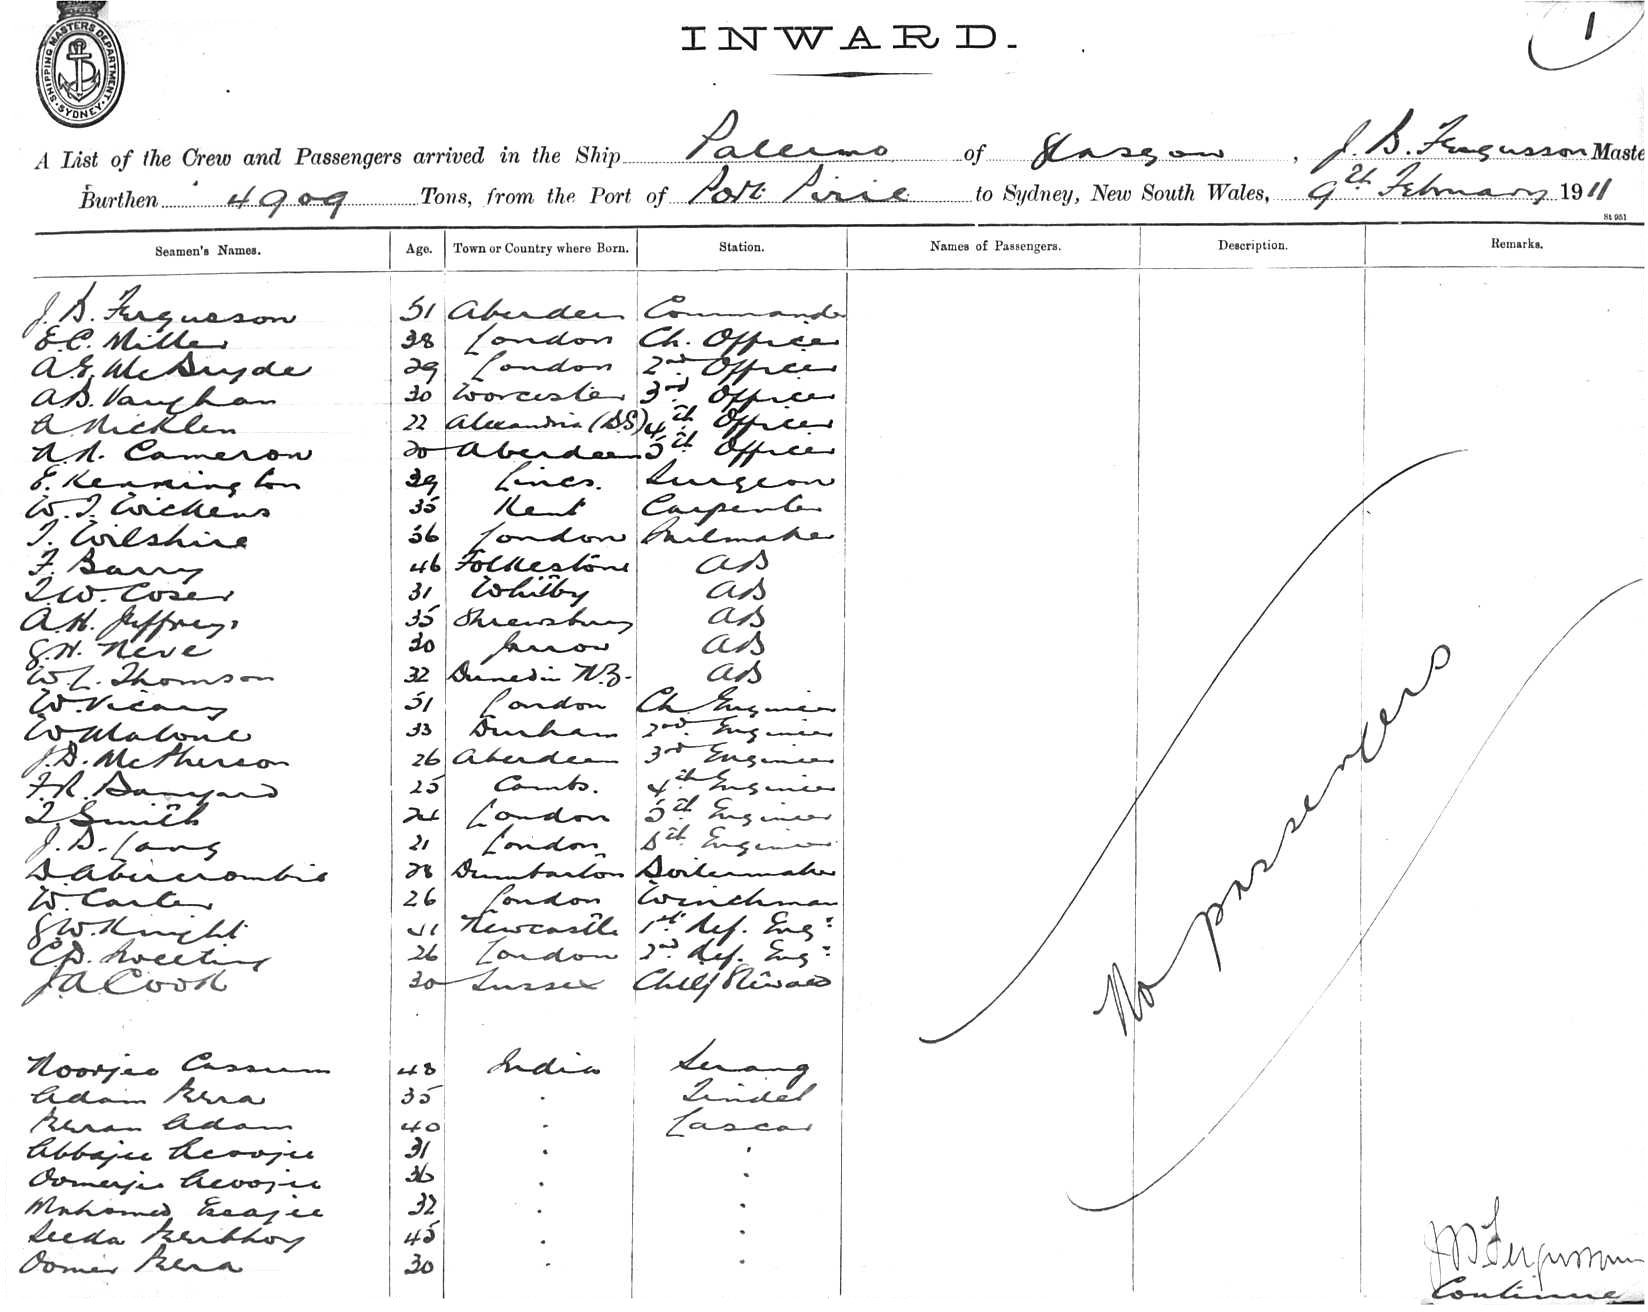 SHIPPING MASTERS DEPARTMENT
SYDNEY
1
INWARD.
A List of the Crew and Passengers arrived in the Ship Palermo of Glasgow, J. B. Fergusson Maste
Burthen 4909 Tons, from the Port of Port Pirie to Sydney, New South Wales, 9th February 1911
St 951
Seamen's Names. Age. Town or Country where Born. Station. Names of Passengers. Description. Remarks.
J. B. Fergusson 51 Aberdeen Commander
E.C. Miller 38 London Ch. Officer
A.G. McBryde 29 London 2nd Officer
A.B. Vaughan 30 Worcester 3rd Officer
A Nicklen 22 Alexandria (BS) 4th Officer
N. N. Cameron 20 Aberdeen 5th Officer
E. Kennington 39 Lincs. Surgeon
W. J. Wickens 35 Kent Carpenter
T. Wilshire 36 London Sailmaker
F. Barry 46 Folkestone AB
T.W. Coser 31 Whitby AB
A.H. Jeffreys 35 Shrewsbury AB
G.H. Neve 30 Jarrow AB
W L. Thomson 32 Dunedin N.Z. AB
W. Vicary 51 London Ch. Engineer
W Malone 33 Durham 2nd Engineer
J.D. McPherson 26 Aberdeen 3rd Engineer
F.R. Banyard 25 Cambs. 4th Engineer
T Smith 24 London 5th Engineer
J. B. Lang 21 London Engineer
D Abercrombie 28 Dumbarton Boilermaker
W. Carter 26 London Winchman
G W. Knight 41 Newcastle 1st Ref. Engr
C.D. Sweeting 26 London 2nd Ref. Engr
J A Cook 30 Sussex Chief Steward
Noorjee Cassum 48 India Serang
Adam Kera 35 . Tindel
Keran Adam 40 . Lascar
Abbajee 31 . .
36 . .
Mahomed Esajee 32 . .
Seeda 45 . .
Oomer Kera 30 . .
No passengers
J B Fergusson
Continue